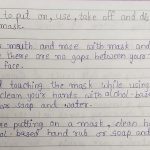 to put on, use, take off and dis
mask.
mouth and nose with mask and
there are no gaps between your
face.
touching the mask while using
clean your hands with alcohol-bas
soap and water.
re putting on a mask, clean ha
ohol-based hand rub or soap and